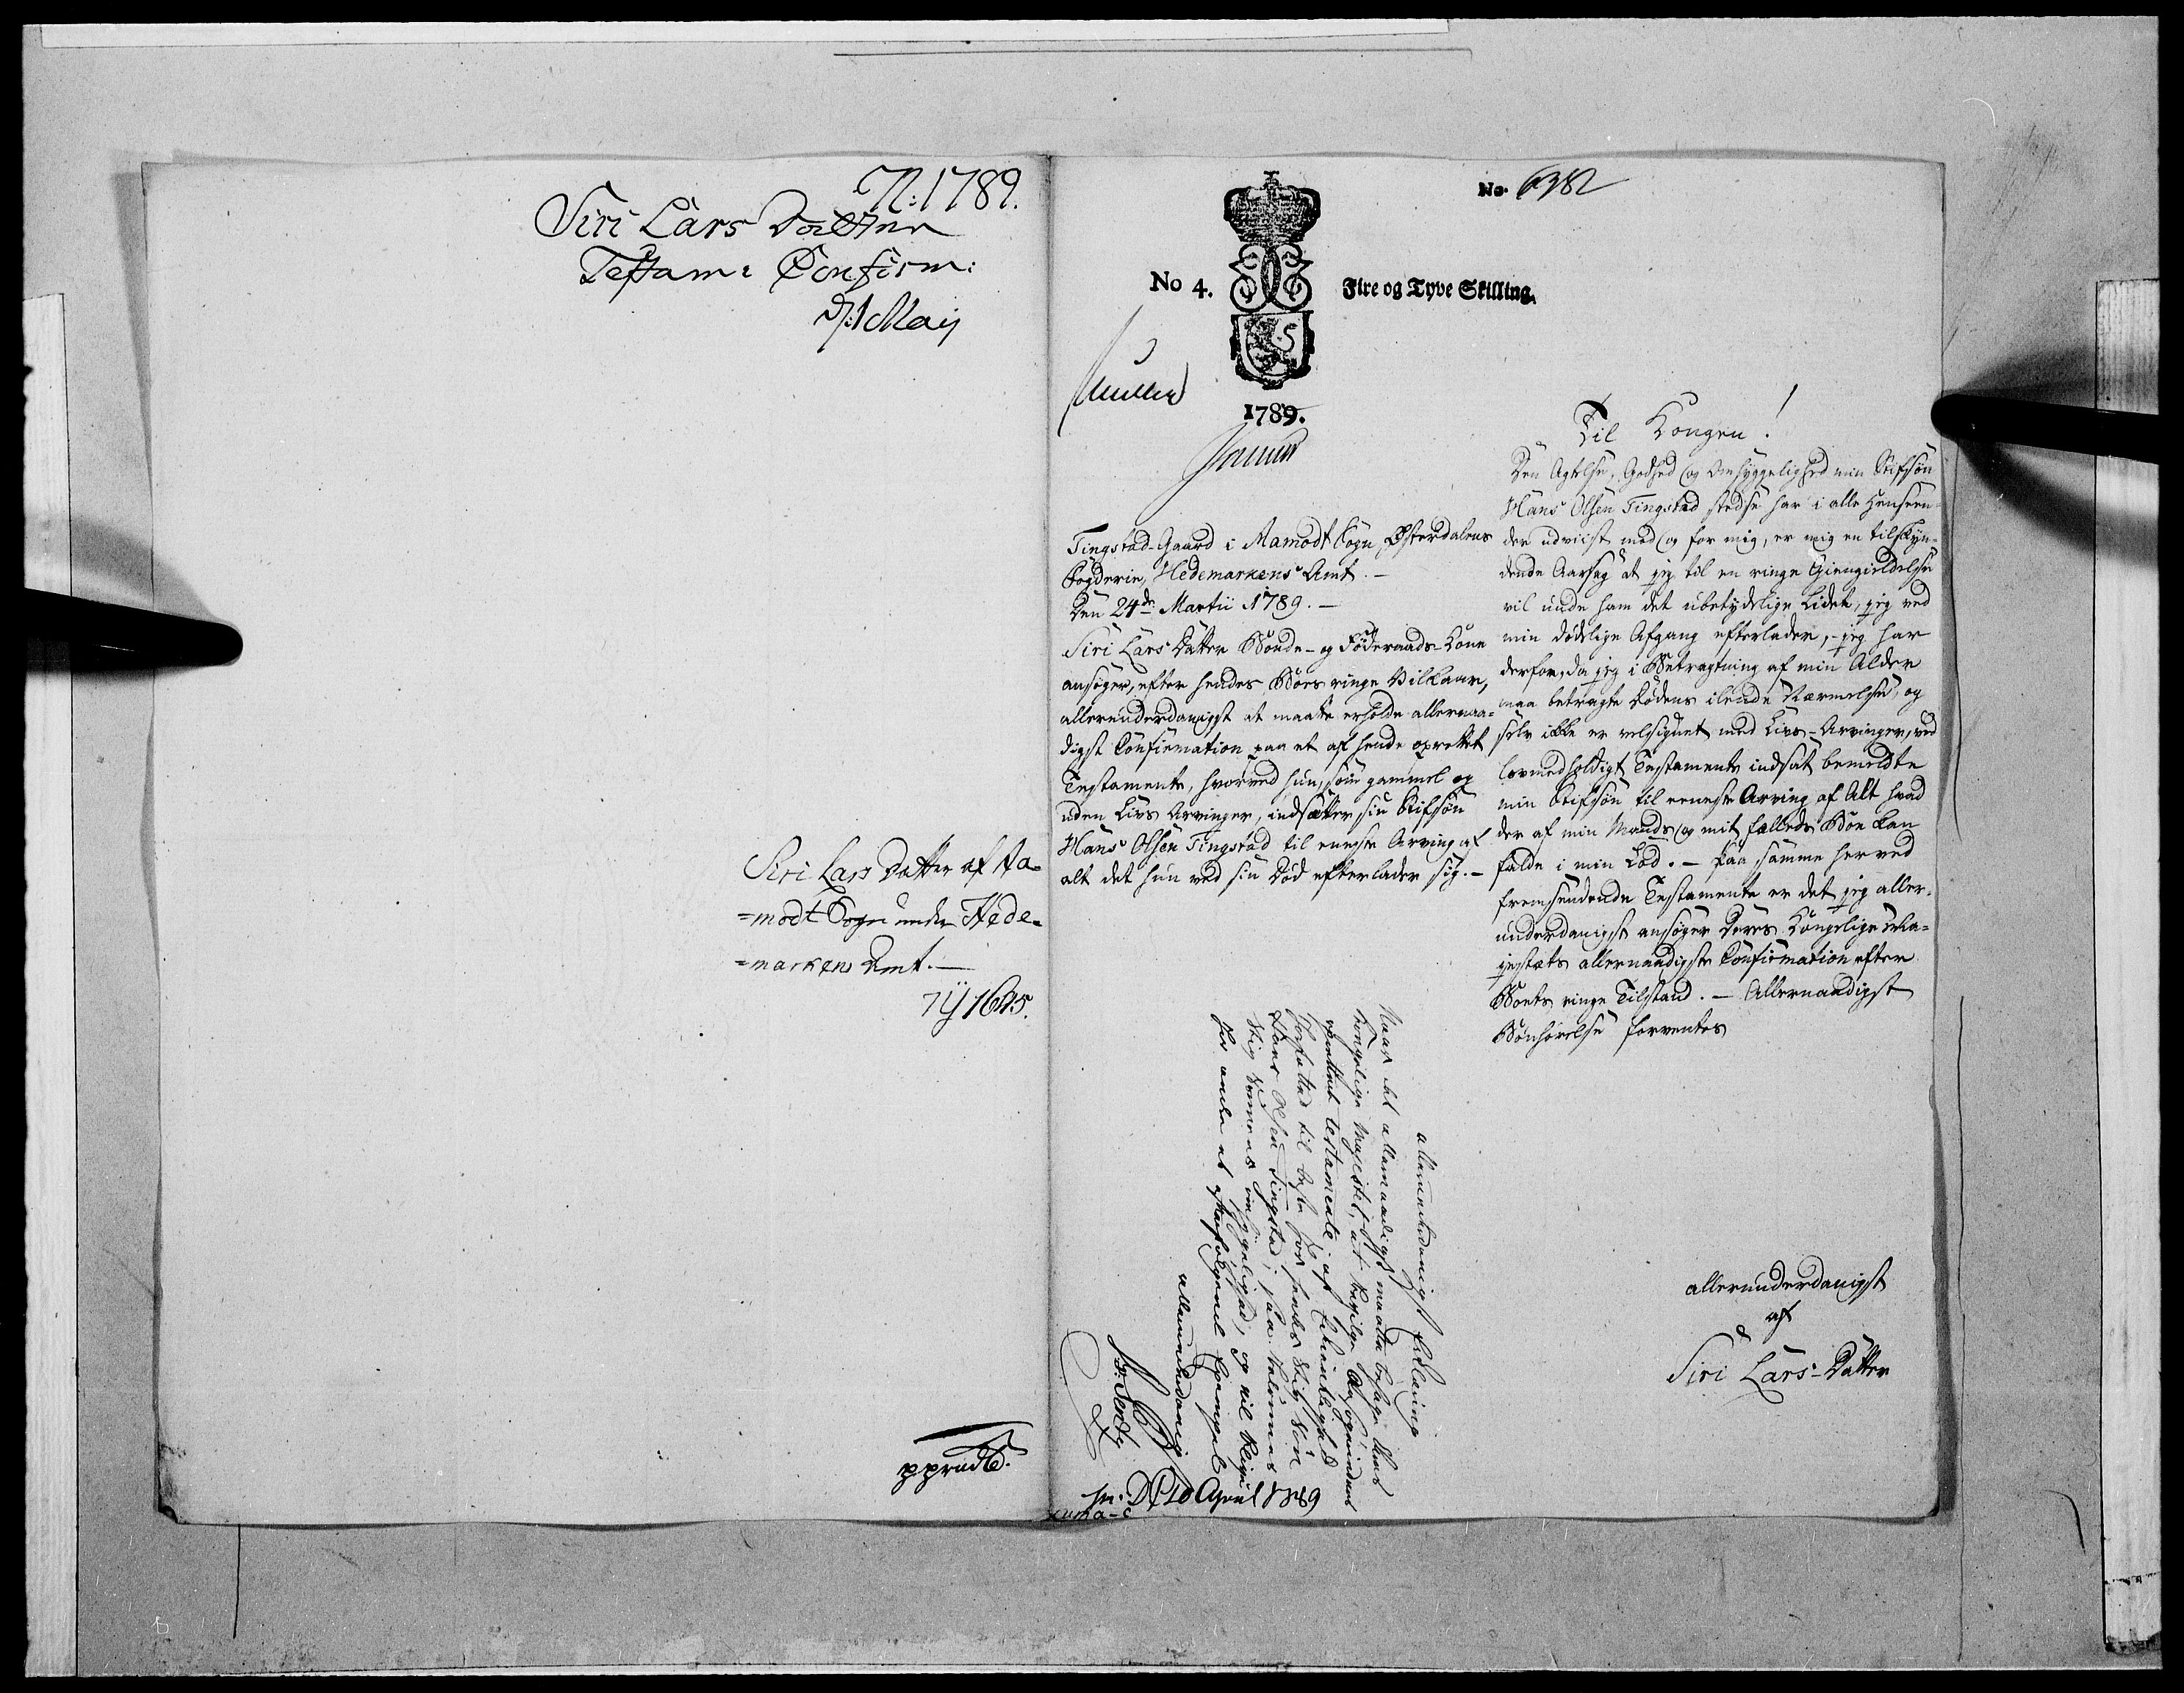 N: 1789.
Siri Lars Datter
Testam: Confirm:
d: 1 Maij
Siri Lars Datter af Aa-
=modt Sogn under Hede-
=markens Amt.
No. 6382
No 4.
Fire og Tyve Skilling.
1789.
Tingstad-Gaard i Aamodt Sogn Østerdalens
Fogderie, Hedemarkens Amt. -
Den 24de Martii 1789. -
Siri Lars Datter Bonde- og Föderaads-Kone
ansøger, efter hendes Boes ringe Vilkaar,
allerunderdanigst at maatte erholde allernaa-
digst Confirmation paa et af hende oprettet
Testamente, hvorved hun, som gammel og
uden Livs Arvinger, indsætter sin Stifsøn
Hans Olsen Tingstad til eneste Arving af
alt det hun ved sin Död efterlader sig. -
Til Kongen!
Den Agtelse, Godhed og Omhyggelighed min Stifsön
Hans Olsen Tingstad stedse har i alle Henseen-
der udviist mod og for mig, er mig en tilskyn-
dende Aarsag at jeg til en ringe Giengieldelse
vil unde ham det ubetydelige Lidet, jeg ved
min dödelige Afgang efterlader, - jeg har
derfor, da jeg i Betragtning af min Alder
maa betragte Dödens ilende Nærmelse, og
selv ikke er velsignet med Livs-Arvinger, ved
lovmedholdigt Testamente indsat bemeldte
min Stifsön til eneste Arving af Alt hvad
der af min Mands og mit fælleds Boe kan
falde i min Lod. - Paa samme herved
fremsendende Testamente er det jeg aller-
underdanigst ansøger Deres Kongelige Ma-
jestæts allernaadigste Confirmation efter
Boets ringe Tilstand. - Allernaadigst
Bönhörelse forventes
allerunderdanigst
af
Siri Lars-Datter
allerunderdanigst Erklæring
Naar det allernaadigst maatte behage Deres
Kongelige Majestet, at
oprettet testamente, af
til beste for hendes Stif Sön
Hans Olsen Tingstad;
allerunderdanigst
pr: D: C: 10 April 1789